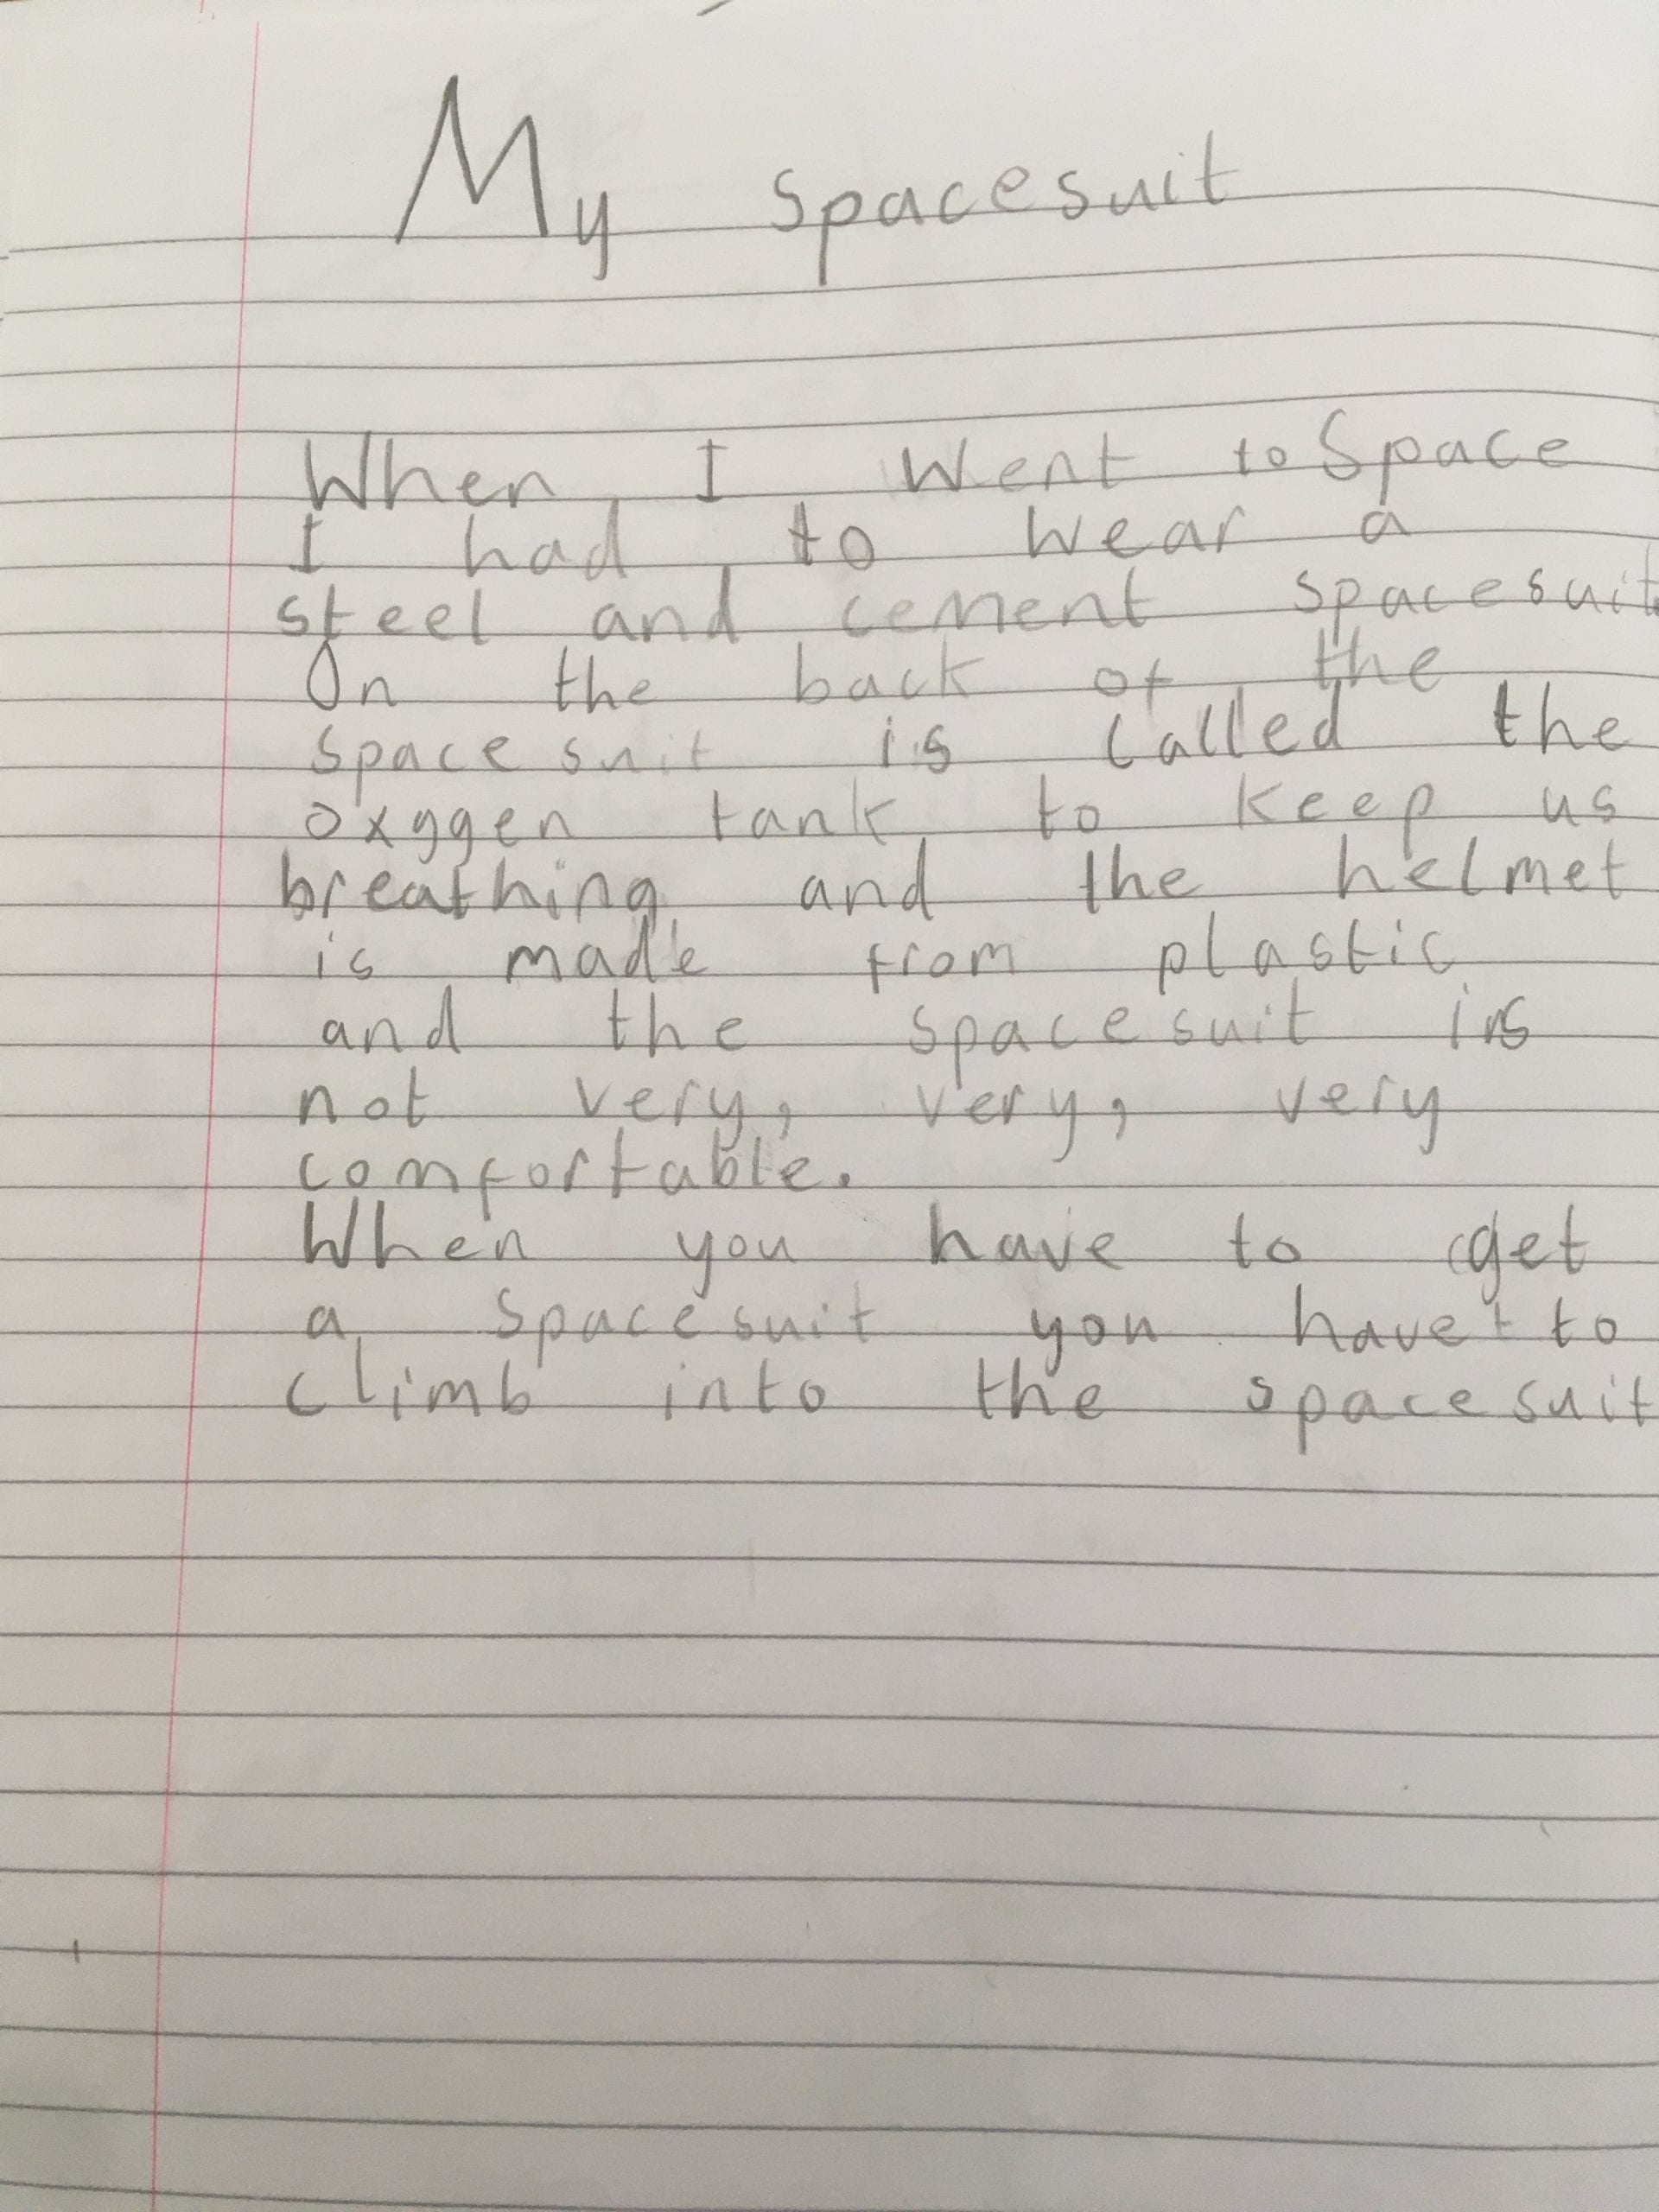 My spacesuit
When I went to Space
I had to wear a
steel and cement spacesuit.
On the back of the
spacesuit is called the
oxygen tank to keep us
breathing and the helmet
is made from plastic
and the spacesuit is
not very, very, very
comfortable.
When you have to get
a spacesuit you have to
climb into the spacesuit